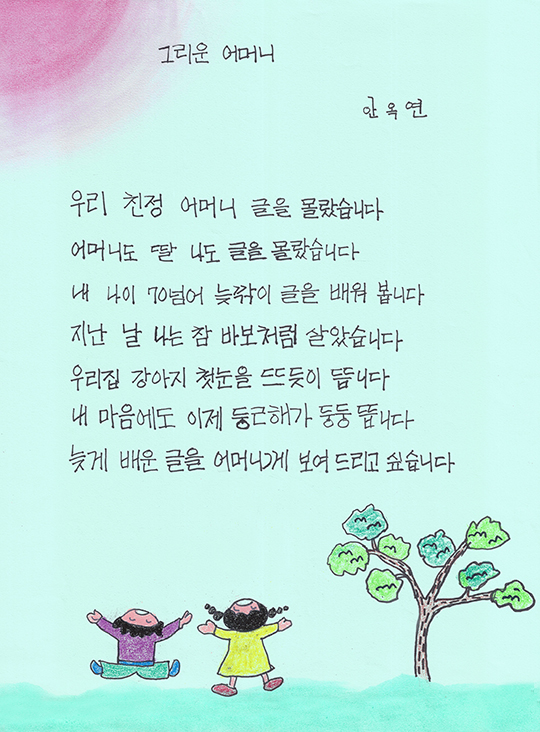 그리운 어머니
안옥연
우리 친정 어머니 글을 몰랐습니다
어머니도 딸 나도 글을 몰랐습니다
내 나이 70넘어 늦깎이 글을 배워 봅니다
지난 날 나는 참 바보처럼 살았습니다
우리집 강아지 첫눈을 뜨듯이 뜹니다
내 마음에도 이제 둥근해가 둥둥 뜹니다
늦게 배운 글을 어머니게 보여 드리고 싶습니다